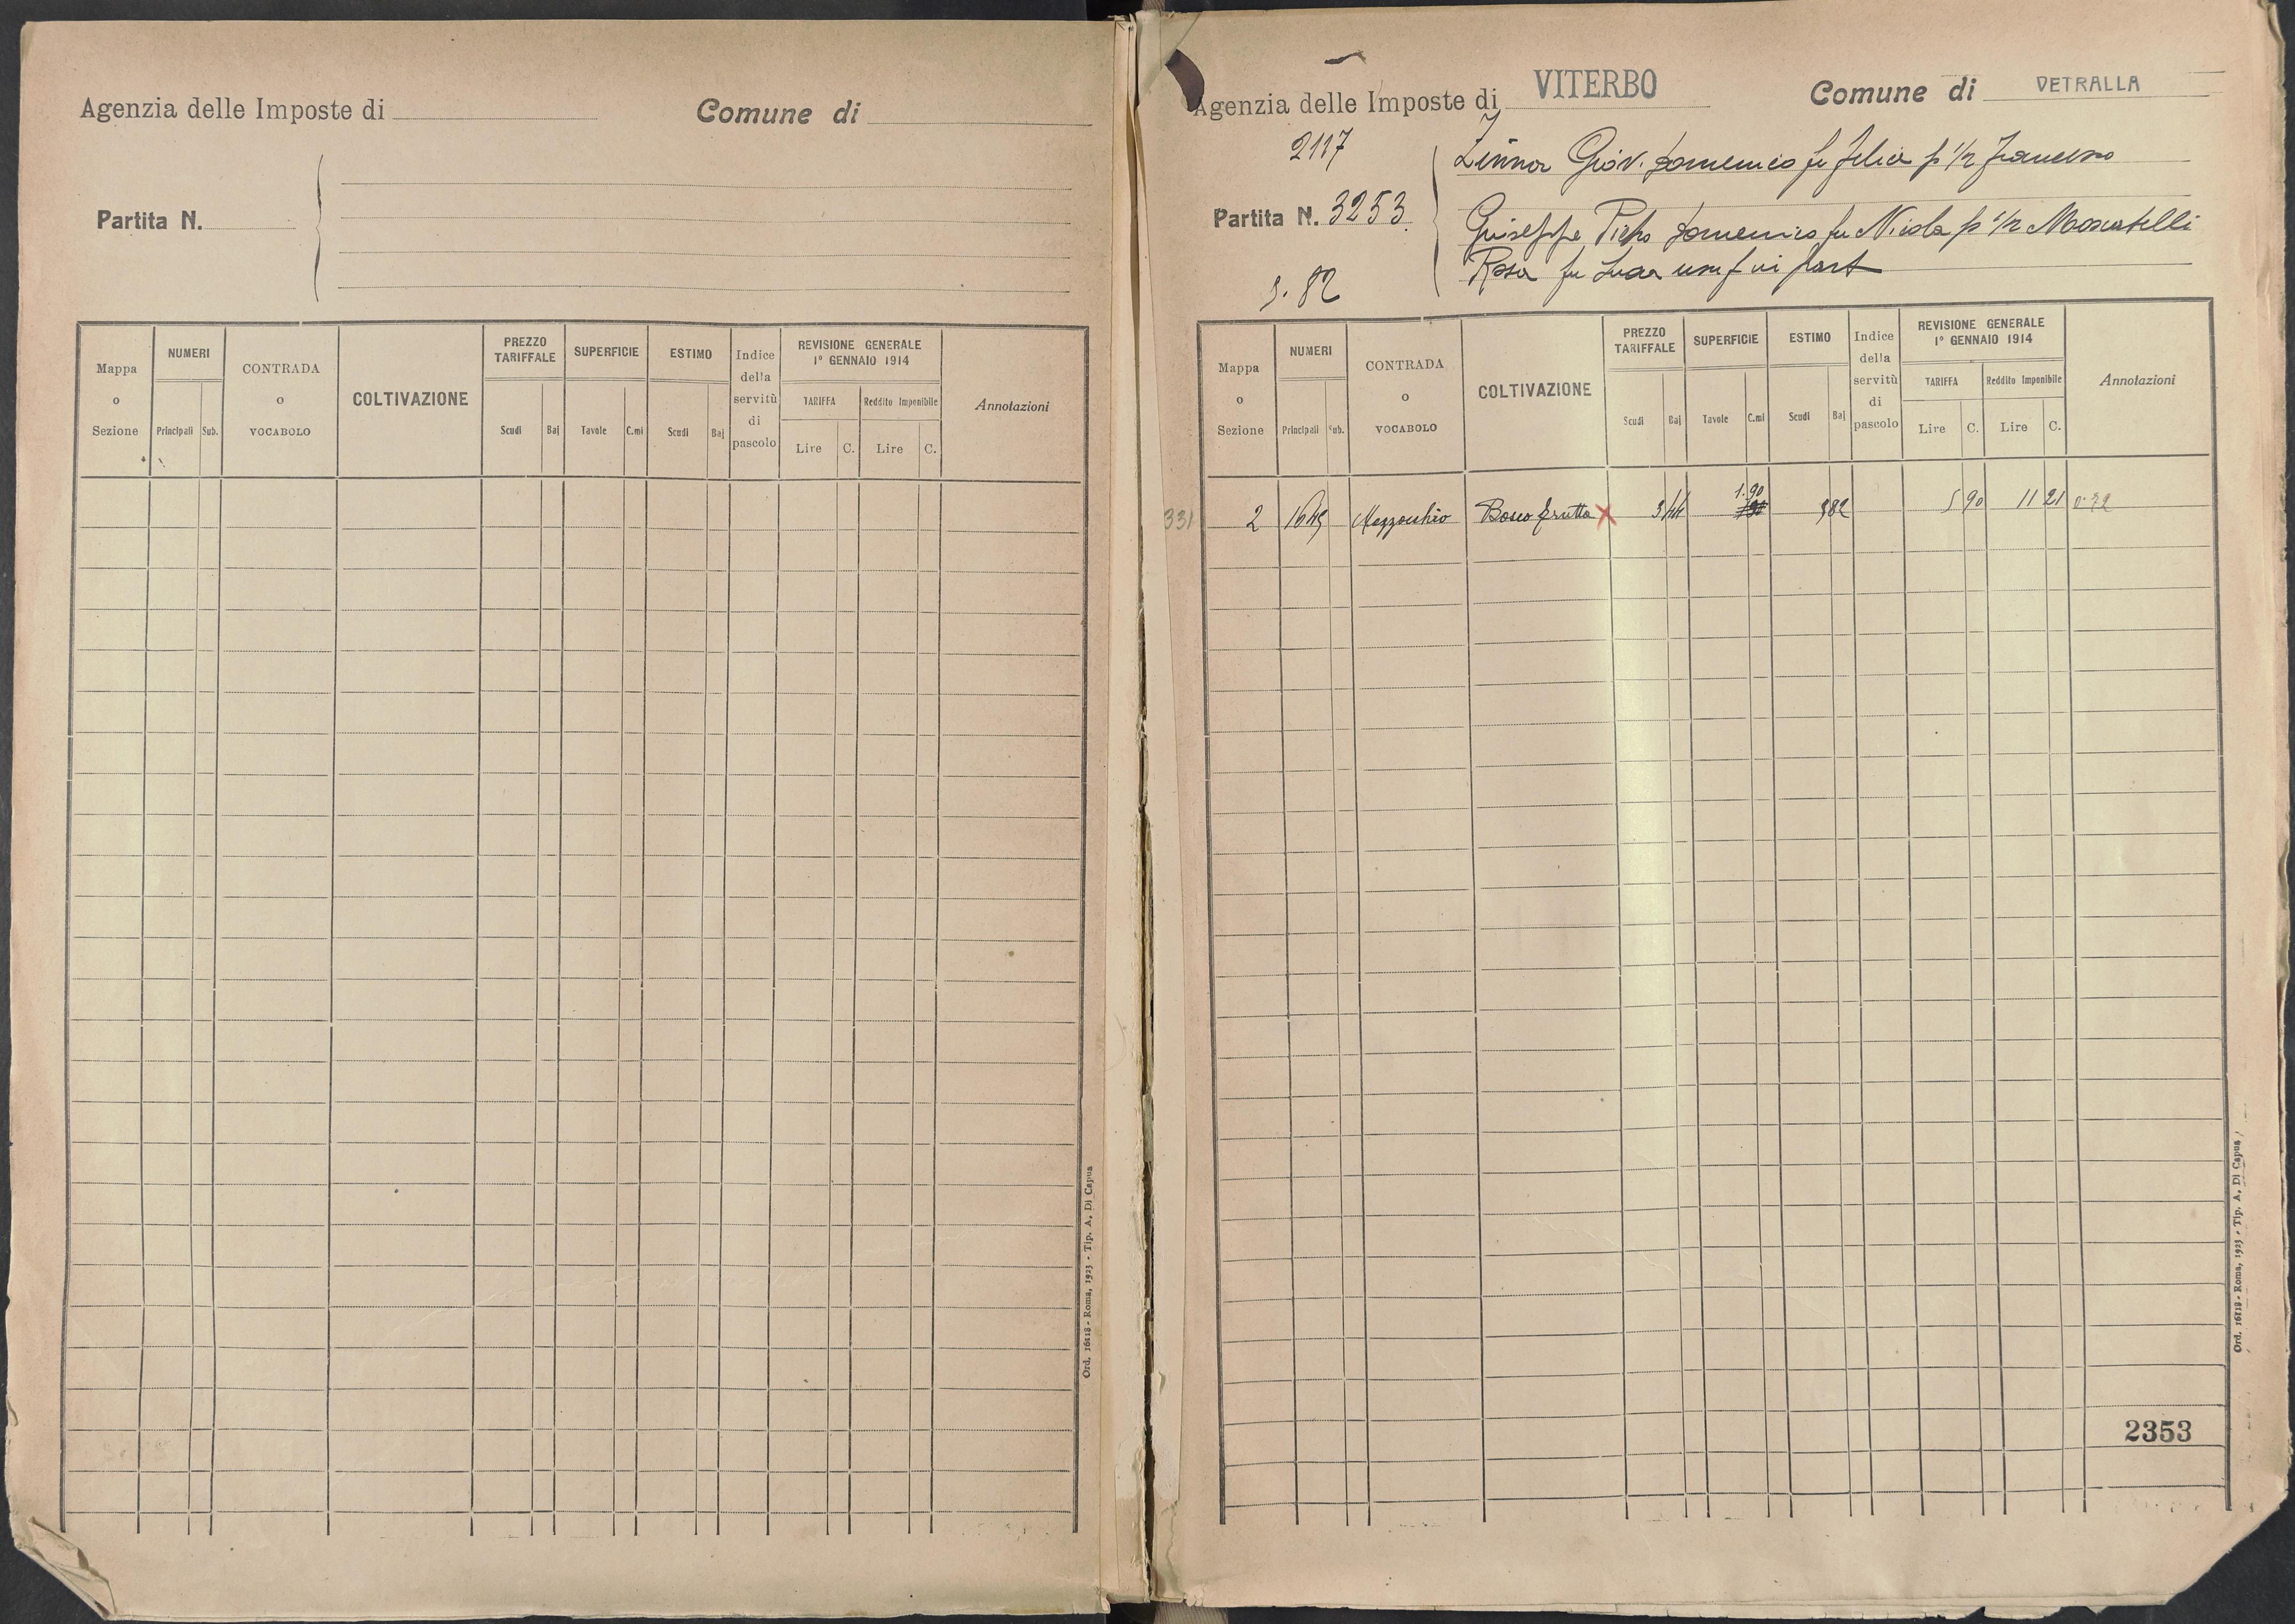 Agenzia delle Imposte di
Comune di
Partita N.
Mappa o Sezione
NUMERI
Principali
Sub.
CONTRADA o VOCABOLO
COLTIVAZIONE
PREZZO TARIFFALE
Scudi
Baj
SUPERFICIE
Tavole
C.mi
ESTIMO
Scudi
Baj
Indice della servitù di pascolo
REVISIONE GENERALE
1º GENNAIO 1914
TARIFFA
Lire
C.
Reddito Imponibile
Lire
C.
Annotazioni
Ord. 16118 - Roma, 1923 - Tip. A. Di Capua
Agenzia delle Imposte di VITERBO
Comune di VETRALLA
2117
Giov. Domenico fu Felice p 1/2 Francesco
Partita N. 3253
Giuseppe, Pietro Domenico fu Nicola p 1/2 Moscatelli
Rosa fu Luca usuf in part
9.82
Mappa o Sezione
NUMERI
Principali
Sub.
CONTRADA o VOCABOLO
COLTIVAZIONE
PREZZO TARIFFALE
Scudi
Baj
SUPERFICIE
Tavole
C.mi
ESTIMO
Scudi
Baj
Indice della servitù di pascolo
REVISIONE GENERALE
1º GENNAIO 1914
TARIFFA
Lire
C.
Reddito Imponibile
Lire
C.
Annotazioni
331 2 1645 Mazzocchio Bosco frutta 3 44 1.90 982 5 90 11 21
2353
Ord. 16118 - Roma, 1923 - Tip. A. Di Capua